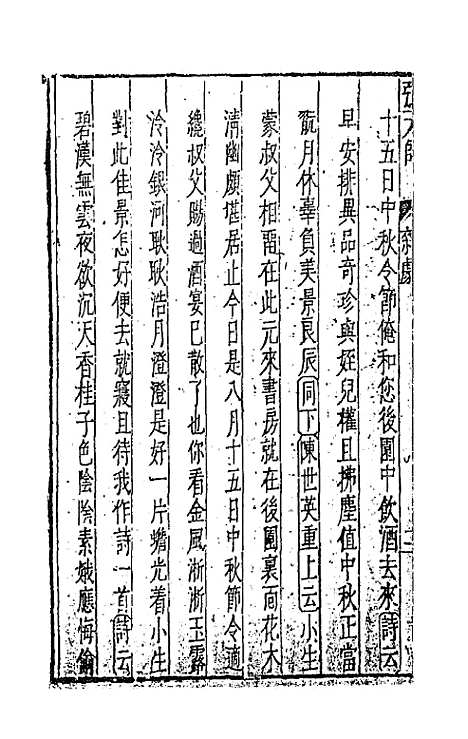 張天師 雜劇 三
十五日中秋令節俺和您後園中飲酒去來詩云
早安排異品奇珍與姪兒權且拂塵值中秋正當
翫月休辜負美景良辰同下陳世英重上云小生
蒙叔父相留在此元來書房就在後園裏面花木
清幽頗堪居止今日是八月十五日中秋節令適
纔叔父賜過酒宴已散了也你看金風淅淅玉露
泠泠銀河耿耿浩月澄澄是好一片蟾光着小生
對此佳景怎好便去就寢且待我作詩一首詩云
碧漢無雲夜欲沉天香桂子色陰陰素娥應悔偷